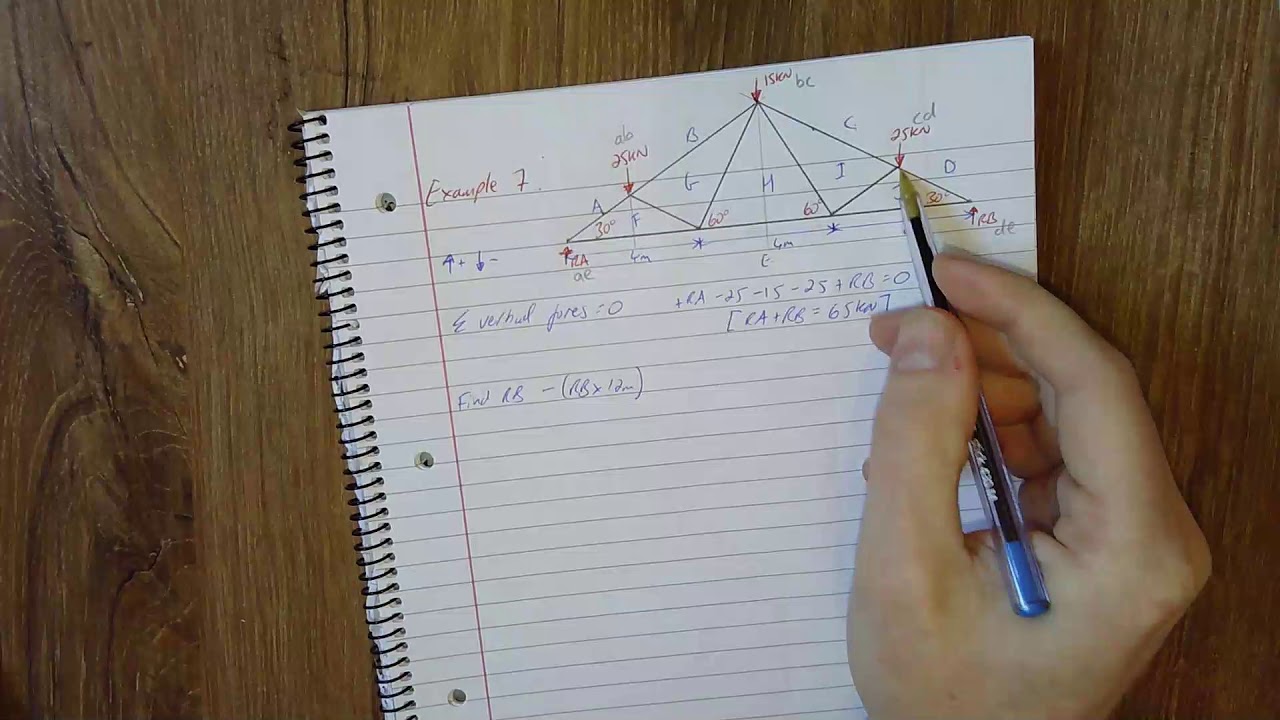 15KN bc
ab
25KN
cd
25KN
B
C
Example 7.
G
H
I
D
A
F
30°
60°
60°
30°
RA
ae
4m
4m
E
RB
de
↑+ ↓-
Σ vertical forces = 0 +RA -25 -15 -25 +RB = 0
[RA+RB = 65KN]
Find RB - (RB × 12m)